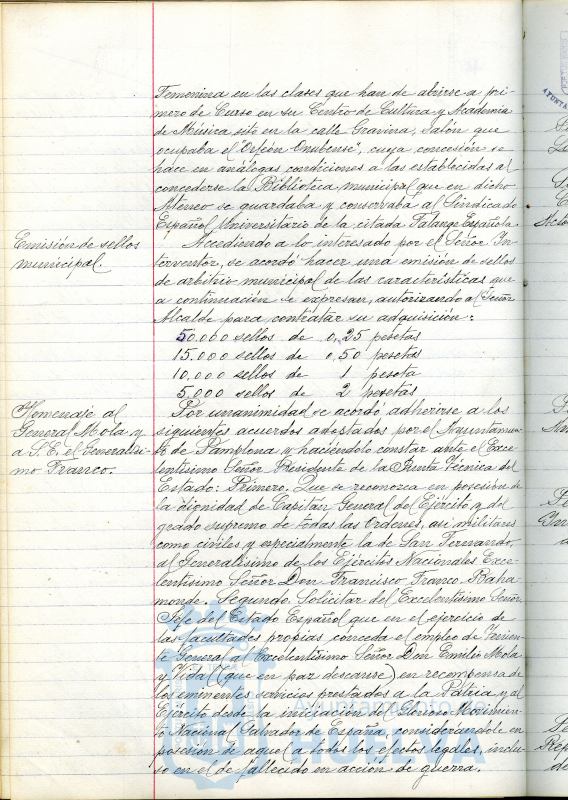 Femenina en las clases que han de abrirse a pri-
mero de Curso en su Centro de Cultura y Academia
de Música, sito en la calle Gravina, Salón que
ocupaba el "Orfeón Onubense", cuya concesión se
hace en análogas condiciones a las establecidas al
concederse la Biblioteca municipal que en dicho
Ateneo se guardaba y conservaba al Sindicado
Español Universitario de la citada Falange Española.
Emisión de sellos
municipal.
Accediendo a lo interesado por el Señor In-
terventor, se acordó hacer una emisión de sellos
de arbitrio municipal de las características que
a continuación se expresan, autorizando al Señor
Alcalde para contratar su adquisición:
50.000 sellos de 0,25 pesetas
15.000 sellos de 0,50 pesetas
10.000 sellos de 1 peseta
5.000 sellos de 2 pesetas
Homenaje al
General Mola y
a S.E. el Generalísi-
mo Franco.
Por unanimidad se acordó adherirse a los
siguientes acuerdos adoptados por el Ayuntamien-
to de Pamplona y haciéndolo constar ante el Exce-
lentísimo Señor Presidente de la Junta Técnica del
Estado: Primero. Que se reconozca en posesión de
la dignidad de Capitán General del Ejército y del
grado supremo de todas las Ordenes, así militares
como civiles y especialmente la de San Fernando,
al Generalísimo de los Ejércitos Nacionales Exce-
lentísimo Señor Don Francisco Franco Baha-
monde. Segundo. Solicitar del Excelentísimo Señor
Jefe del Estado Español que en el ejercicio de
las facultades propias conceda el empleo de Tenien-
te General al Excelentísimo Señor Don Emilio Mola
y Vidal (que en paz descanse) en recompensa de
los eminentes servicios prestados a la Patria y al
Ejército desde la iniciación del Glorioso Movimien-
to Nacional Salvador de España, considerándole en
posesión de aquel a todos los efectos legales, inclu-
so en el de fallecido en acción de guerra.
Ayuntamiento de
HUELVA